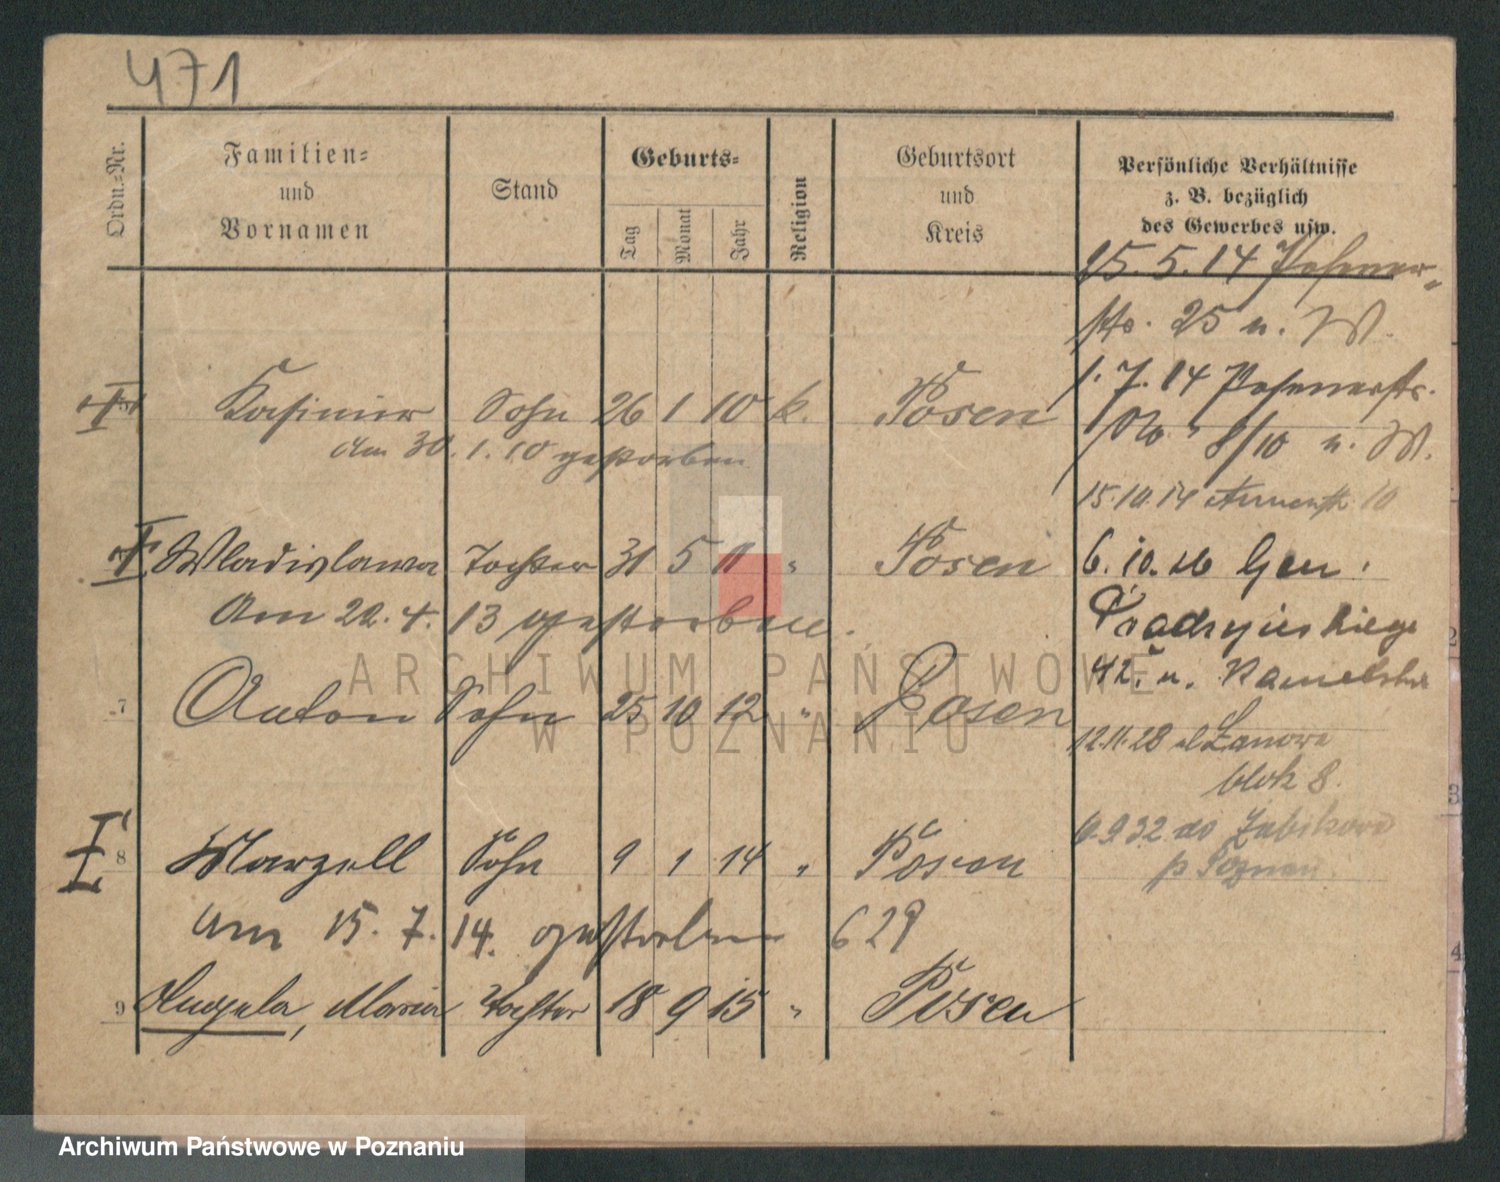 471
Ordn.-Nr.
Familien-
und
Vornamen
Stand
Geburts-
Tag
Monat
Jahr
Religion
Geburtsort
und
Kreis
Persönliche Verhältnisse
z. B. bezüglich
des Gewerbes usw.
15. 5. 14 Posener-
str. 25 u. W.
1. 7. 14 Posenerstr.
8/10 u. W.
15.10.14 10
6. 10. 26 Gen.
Prądzyńskiego
42. u.
12.11.28
blok 8.
6.9.32 do Żabikowo
p Poznan
Kasimir Sohn 26 1 10 k. Posen
Am 30. 1. 10 gestorben
Wladislawa Tochter 31 5 11 " Posen
Am 22. 4. 13 gestorben.
7 Anton Sohn 25 10 12 " Posen
8 Marzell Sohn 9 1 14 " Posen
Am 15. 7. 14. gestorben 629
9 Angela, Maria Tochter 18 9 15 " Posen
2
3
4
ARCHIWUM PAŃSTWOWE
W POZNANIU
Archiwum Państwowe w Poznaniu